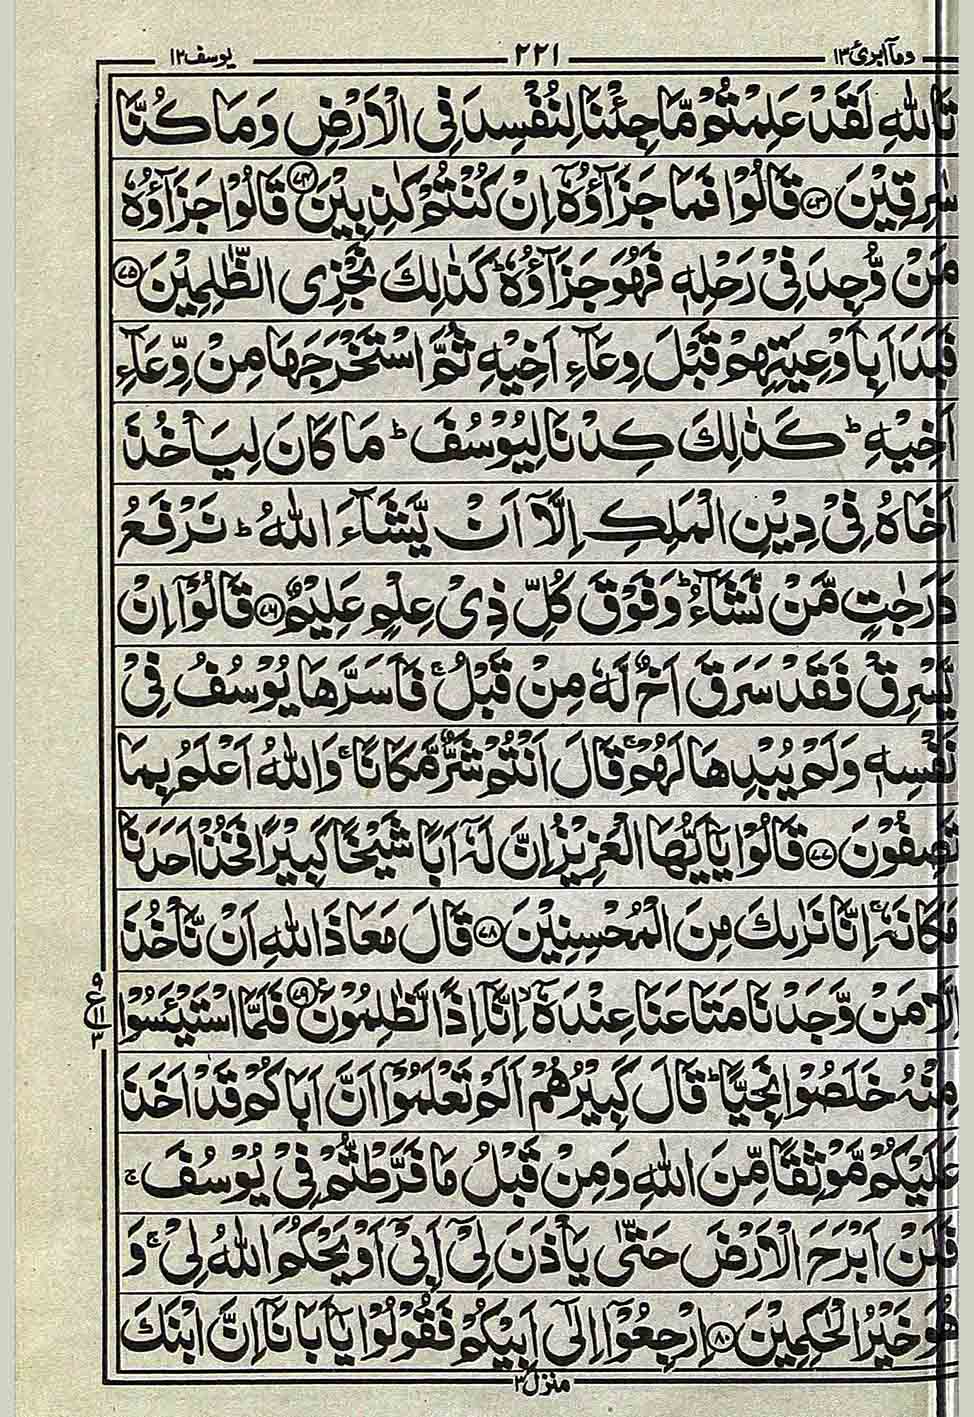 وما ابرئ ١٣ ٢٢١ يوسف ١٢
تَاللّٰهِ لَقَدْ عَلِمْتُمْ مَّا جِئْنَا لِنُفْسِدَ فِي الْاَرْضِ وَمَا كُنَّا
سٰرِقِيْنَ ﴿٧٣﴾ قَالُوْا فَمَا جَزَآؤُهٗۤ اِنْ كُنْتُمْ كٰذِبِيْنَ ﴿٧٤﴾ قَالُوْا جَزَآؤُهٗ
مَنْ وُّجِدَ فِيْ رَحْلِهٖ فَهُوَ جَزَآؤُهٗ ؕ كَذٰلِكَ نَجْزِي الظّٰلِمِيْنَ ﴿٧٥﴾
فَبَدَاَ بِاَوْعِيَتِهِمْ قَبْلَ وِعَآءِ اَخِيْهِ ثُمَّ اسْتَخْرَجَهَا مِنْ وِّعَآءِ
اَخِيْهِ ؕ كَذٰلِكَ كِدْنَا لِيُوْسُفَ ؕ مَا كَانَ لِيَاْخُذَ
اَخَاهُ فِيْ دِيْنِ الْمَلِكِ اِلَّاۤ اَنْ يَّشَآءَ اللّٰهُ ؕ نَرْفَعُ
دَرَجٰتٍ مَّنْ نَّشَآءُ ؕ وَفَوْقَ كُلِّ ذِيْ عِلْمٍ عَلِيْمٌ ﴿٧٦﴾ قَالُوْۤا اِنْ
يَّسْرِقْ فَقَدْ سَرَقَ اَخٌ لَّهٗ مِنْ قَبْلُ ۚ فَاَسَرَّهَا يُوْسُفُ فِيْ
نَفْسِهٖ وَلَمْ يُبْدِهَا لَهُمْ ۚ قَالَ اَنْتُمْ شَرٌّ مَّكَانًا ۚ وَاللّٰهُ اَعْلَمُ بِمَا
تَصِفُوْنَ ﴿٧٧﴾ قَالُوْا يٰۤاَيُّهَا الْعَزِيْزُ اِنَّ لَهٗۤ اَبًا شَيْخًا كَبِيْرًا فَخُذْ اَحَدَنَا
مَكَانَهٗ ۚ اِنَّا نَرٰىكَ مِنَ الْمُحْسِنِيْنَ ﴿٧٨﴾ قَالَ مَعَاذَ اللّٰهِ اَنْ نَّاْخُذَ
اِلَّا مَنْ وَّجَدْنَا مَتَاعَنَا عِنْدَهٗۤ ۙ اِنَّاۤ اِذًا لَّظٰلِمُوْنَ ﴿٧٩﴾ فَلَمَّا اسْتَيْـَٔسُوْا
مِنْهُ خَلَصُوْا نَجِيًّا ؕ قَالَ كَبِيْرُهُمْ اَلَمْ تَعْلَمُوْۤا اَنَّ اَبَاكُمْ قَدْ اَخَذَ
عَلَيْكُمْ مَّوْثِقًا مِّنَ اللّٰهِ وَمِنْ قَبْلُ مَا فَرَّطْتُّمْ فِيْ يُوْسُفَ ۚ
فَلَنْ اَبْرَحَ الْاَرْضَ حَتّٰى يَاْذَنَ لِيْۤ اَبِيْۤ اَوْ يَحْكُمَ اللّٰهُ لِيْ ۚ وَ
هُوَ خَيْرُ الْحٰكِمِيْنَ ﴿٨٠﴾ اِرْجِعُوْۤا اِلٰۤى اَبِيْكُمْ فَقُوْلُوْا يٰۤاَبَانَاۤ اِنَّ ابْنَكَ
منزل ٣